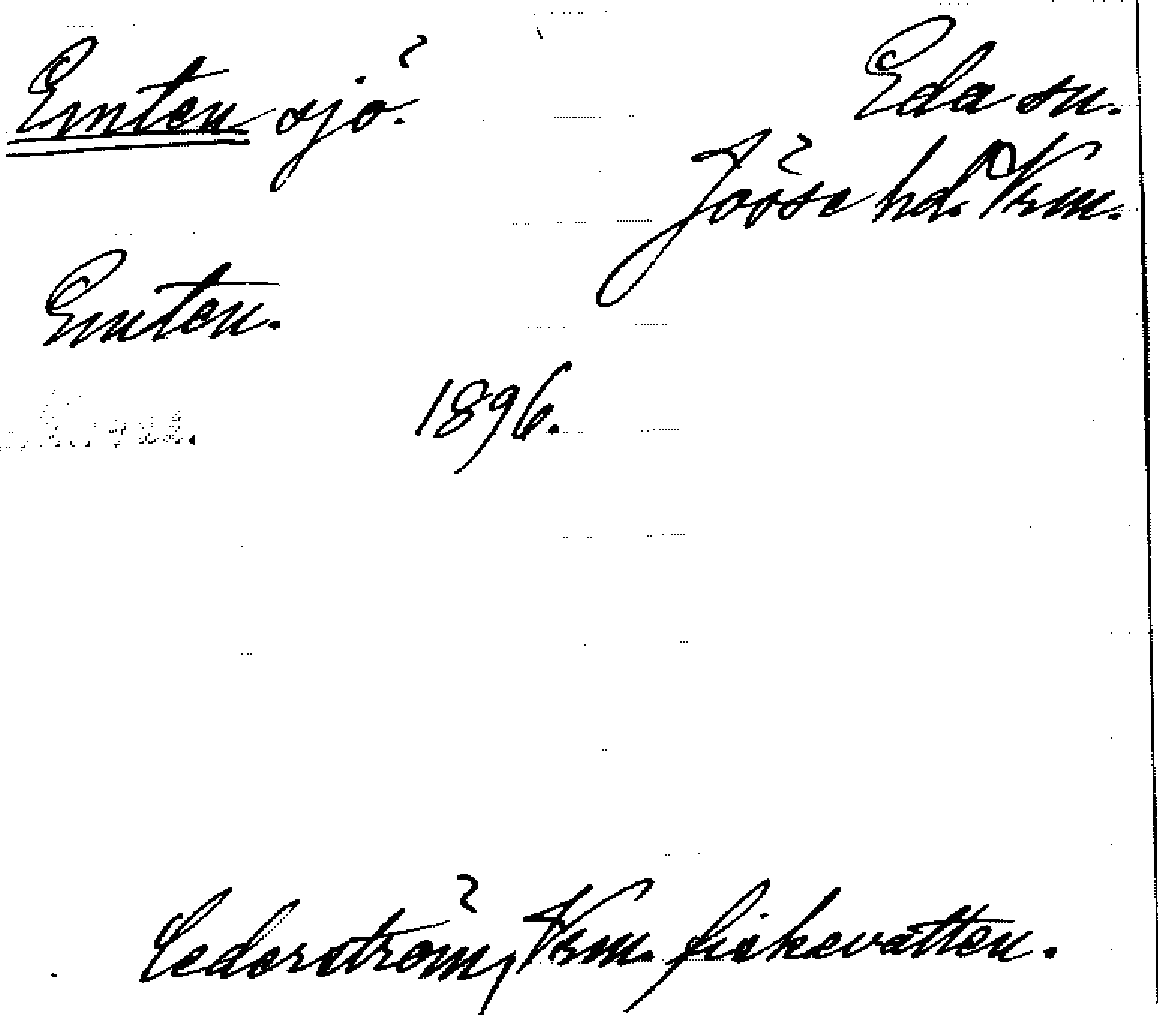 Emten sjö.
Eda sn.
Jösse hd. Vrm.
Emten.
1896.
Cederström, Vrm. fiskevatten.